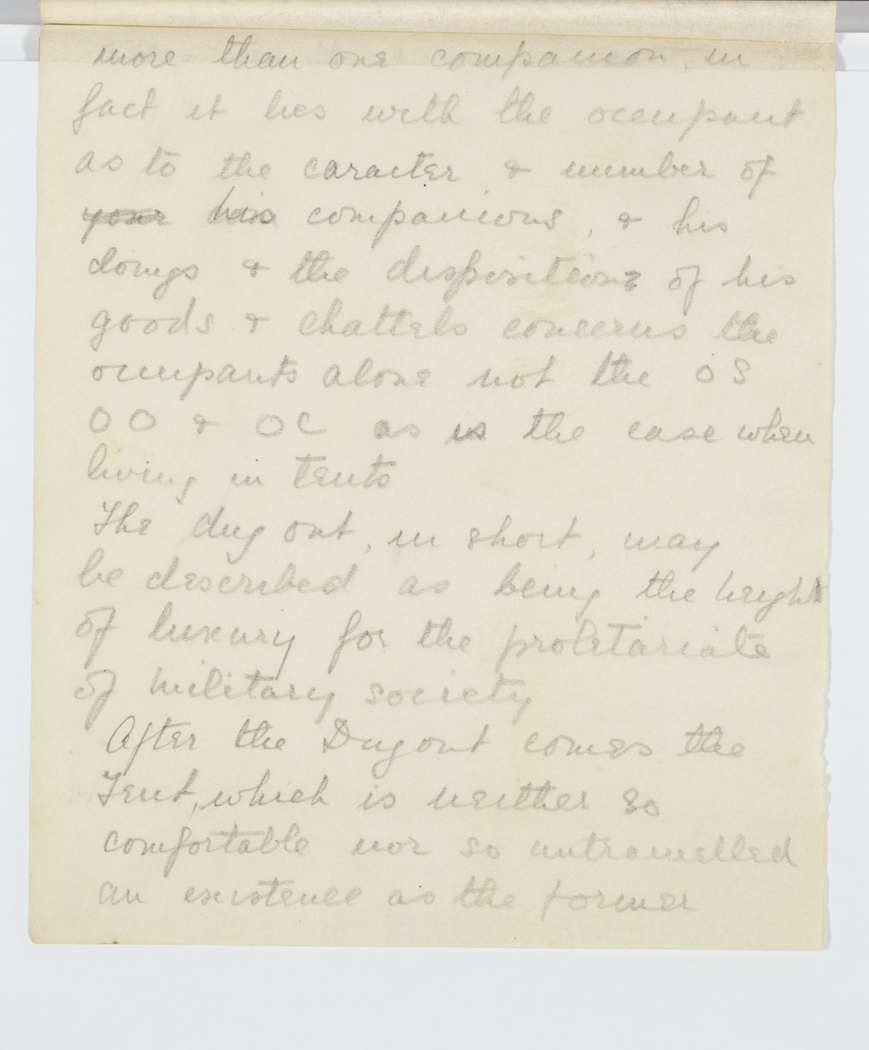 more than one companion, in
fact it lies with the occupant
as to the caracter & number of
your his companions, & his
doings & the dispositions of his
goods & chattels concerns the
occupants alone not the OS
OO & OC as is the case when
living in tents
The dug out, in short, may
be described as being the height
of luxury for the proletariate
of military society
After the Dugout comes the
Tent, which is neither so
comfortable nor so untramelled
an existence as the former